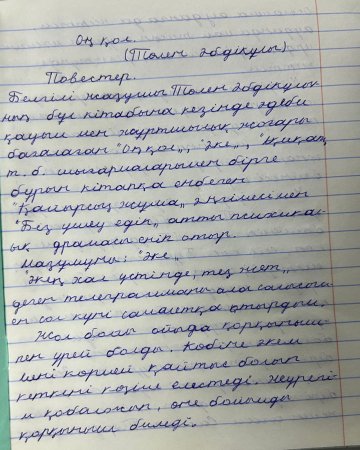 Оң қол.
(Төлен Әбдікұлы)
Повестер.
Белгілі жазушы Төлен Әбдікұлы-
ның бұл кітабына кезінде әдеби
қауым мен жұртшылық жоғары
бағалаған "Оң қол", "Әке", "Ақиқат"
т.б. шығармаларымен бірге
бұрын кітапқа енбеген
"Қайырсыз жұма" әңгімесі мен
"Біз үшеу едік" атты психика-
лық драмасы еніп отыр.
Мазмұны: "Әке"
"Әкең хал үстінде, тез жет"
деген телеграмманы ала салысы-
ен сол күні самалетқа отырдым.
Жол бойы ойыма қорқыныш
пен үрей болды. Көбіне әкем
мені көрмей қайтыс болып
кеткені көзіме елестеді. Жүрегі-
м қобалжып, өне бойымды
қорқыныш биледі.